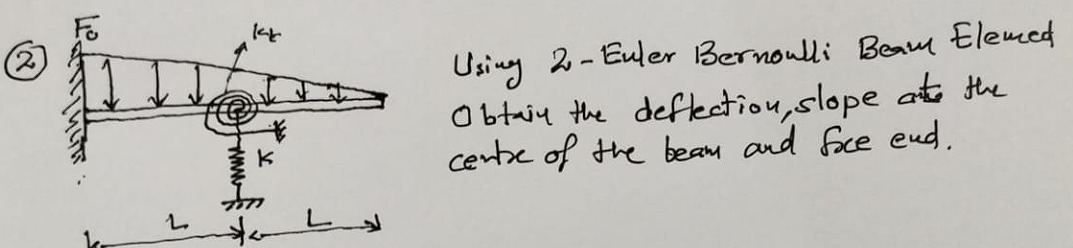 ②
F₀
kt
K
L
L
Using 2-Euler Bernoulli Beam Elemed
Obtain the deflection, slope at the
centre of the beam and free end.